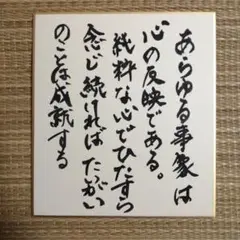 あらゆる事象は
心の反映である。
純粋な心でひたすら
念じ続ければたいがい
のことは成就する